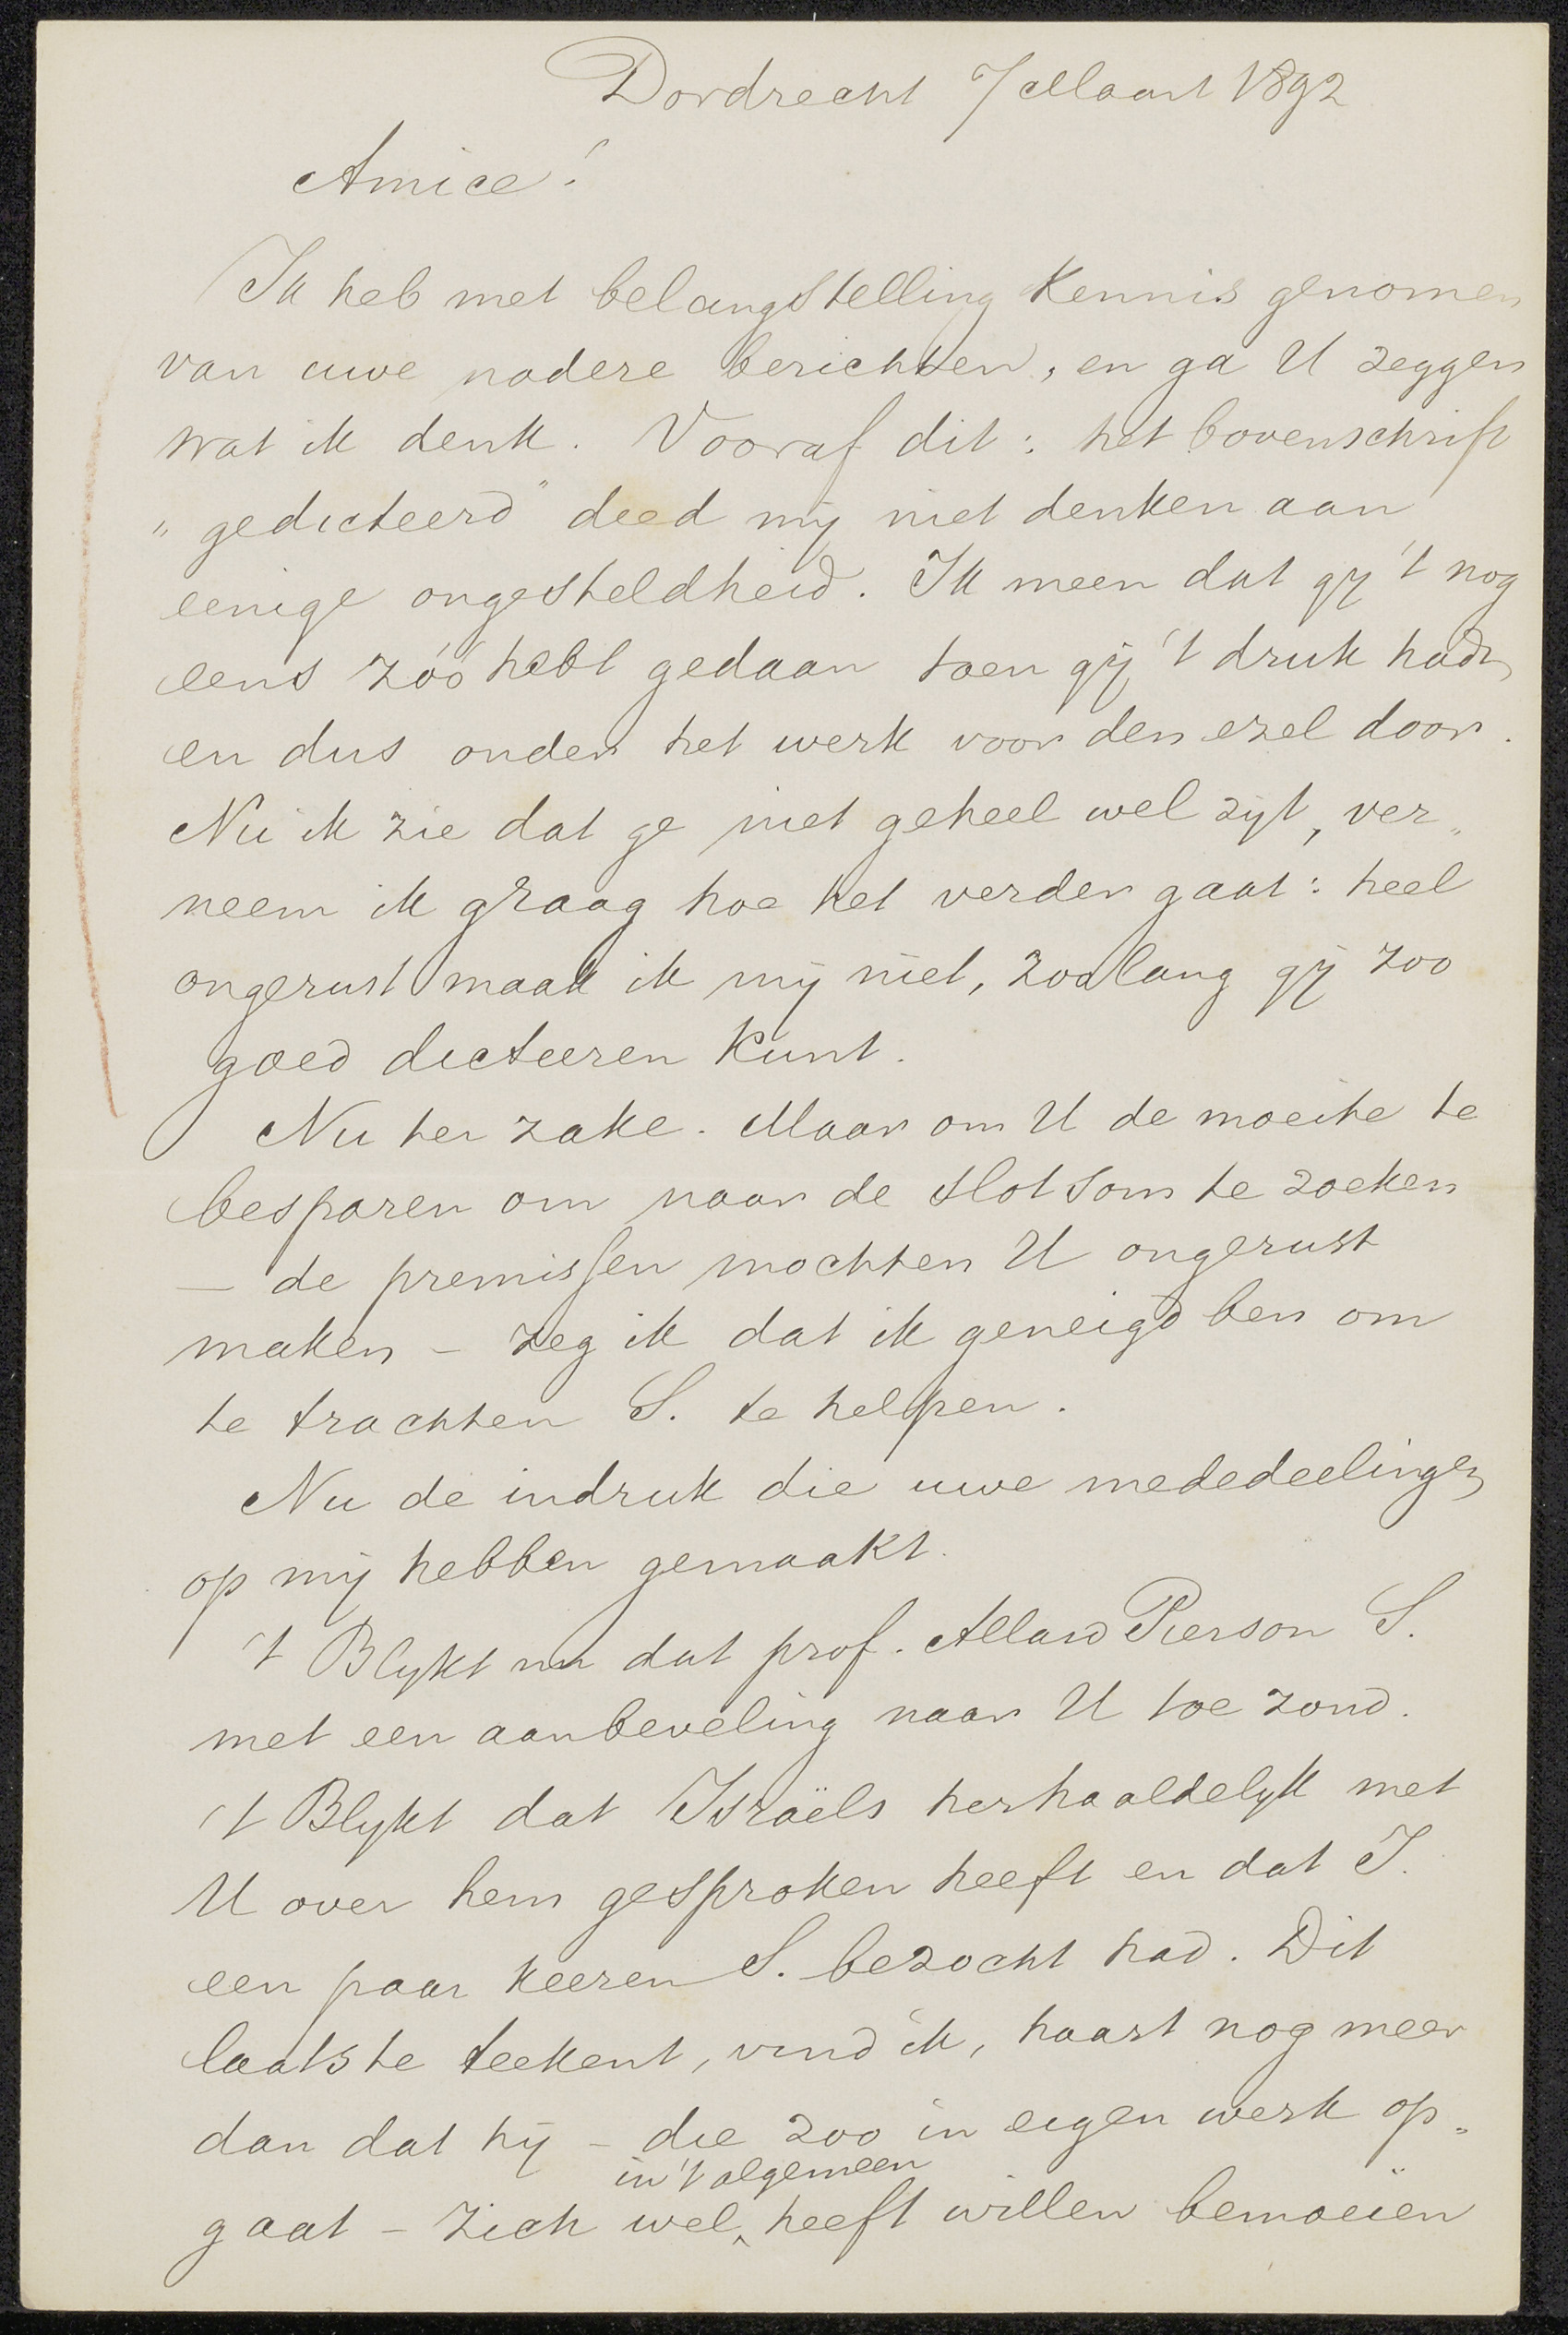 Dordrecht 7 Maart 1892
Amice!
Ik heb met belangstelling kennis genomen
van uwe nadere berichten, en ga U zeggen
wat ik denk. Vooraf dit: het bovenschrift
„gedicteerd” deed mij niet denken aan
eenige ongesteldheid. Ik meen dat gij 't nog
eens zóó hebt gedaan toen gij 't druk hadt,
en dus onder het werk voor den ezel door.
Nu ik zie dat ge niet geheel wel zijt, ver„
neem ik graag hoe het verder gaat: heel
ongerust maak ik mij niet, zoolang gij zoo
goed dicteeren kunt.
Nu ter zake. Maar om U de moeite te
besparen om naar de slotsom te zoeken
— de premissen mochten U ongerust
maken — zeg ik dat ik geneigd ben om
te trachten S. te helpen.
Nu de indruk die uwe mededeelingen
op mij hebben gemaakt.
't Blijkt nu dat prof. Allard Pierson S.
met een aanbeveling naar U toe zond.
't Blijkt dat Israëls herhaaldelijk met
U over hem gesproken heeft en dat I.
een paar keeren S. bezocht had. Dit
laatste teekent, vind ik, haast nog meer
dan dat hij – die zoo in eigen werk op„
in 't algemeen
gaat – zich wel heeft willen bemoeien